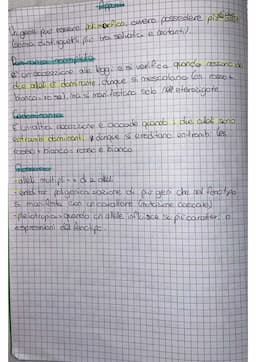 Un gene può essere polimorfico, ovvero possedere più alleli
(senza distinguerli più tra selvatici e mutanti).
Dominanza incompleta
È un'eccezione alle leggi e si verifica quando nessuno dei
due alleli è dominante, dunque si mescolano (es. rosso +
bianco = rosa), ma si manifestano solo nell'eterozigote.
Codominanza
È un'altra eccezione e accade quando i due alleli sono
entrambi dominanti e dunque si ereditano entrambi (es.
rosso + bianco = rosso e bianco
- alleli multipli = + di 2 alleli
- eredità poligenica = azione di più geni che sul fenotipo
si manifesta con un carattere
- pleiotropia = quando un allele influisce su più caratteri o
espressioni del fenotipo.